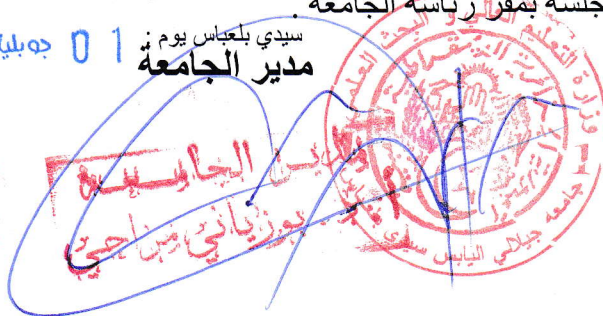 جلسة بمقر رئاسة الجامعة .
سيدي بلعباس يوم : 01 جويلية
مدير الجامعة
مدير الجامعة
أ.د. بوزياني مراحي
وزارة التعليم العالي و البحث العلمي
جامعة جيلالي اليابس سيدي